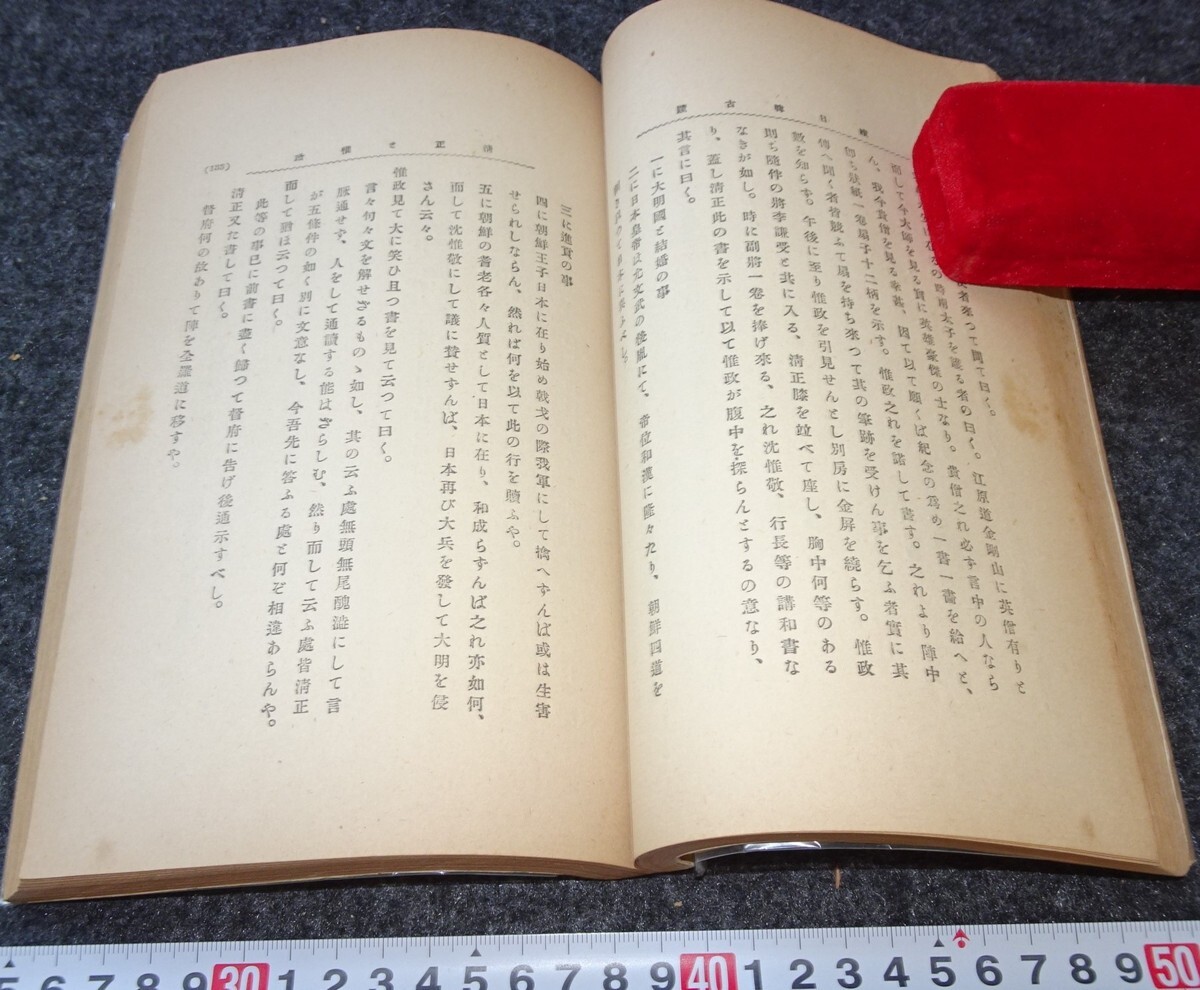 来つて問て曰く。
の時朝太子を護る者の曰く。江原道金剛山に英僧有りと
而して今大師を見る實に英雄豪傑の士なり。貴僧之れ必ず言中の人なら
ん、我今貴僧を見る幸甚、因て以て願くば紀念の爲め一書一畵を給へと、
即ち狀紙一卷扇子十二柄を示す。惟政之れを諾して書す。之れより陣中
傳へ聞く者皆競ふて扇を持ち來つて其の筆跡を受けん事を乞ふ者實に其
數を知らず。午後に至り惟政を引見せんとし別房に金屏を繞らす。惟政
則ち隨件の將李謙受と共に入る、清正膝を竝べて座し、胸中何等のある
なきが如し。時に副將一卷を捧げ來る、之れ沈惟敬、行長等の講和書な
り、蓋し清正此の書を示して以て惟政が腹中を探らんとするの意なり、
其言に曰く。
一に大明國と結婚の事
二に日本皇帝は允文武の後胤にて、帝位和漢に隆々たり、朝鮮四道を
清正と惟政
三に進貢の事
四に朝鮮王子日本に在り始め戟戈の際我軍にして擒へずんば或は生害
せられしならん、然れば何を以て此の行を贖ふや。
五に朝鮮の耆老各々人質として日本に在り、和成らずんば之れ亦如何、
而して沈惟敬にして議に賛せずんば、日本再び大兵を發して大明を侵
さん云々。
惟政見て大に笑ひ且つ書を見て云つて曰く。
言々句々文を解せざるものゝ如し、其の云ふ處無頭無尾醜澁にして言
脈通せず、人をして通讀する能はざらしむ、然り而して云ふ處皆清正
が五條件の如く別に文意なし、今吾先に答ふる處と何ぞ相違あらんや。
而して晤ほ云つて曰く。
此等の事已に前書に盡く歸つて督府に告げ後通示すべし。
清正又た書して曰く。
督府何の故ありて陣を全羅道に移すや。
(133)
6 7 8 9 30 1 2 3 4 5 6 7 8 9 40 1 2 3 4 5 6 7 8 9 50